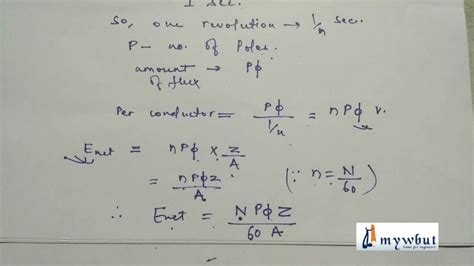 1 sec.
So, one revolution → 1/n sec.
P – no. of Poles.
amount of flux → Pϕ
Per conductor = Pϕ / 1/n = nPϕ v.
Enet = nPϕ × Z/A
= nPϕZ/A (∵ n = N/60)
∴ Enet = NPϕZ / 60 A
mywbut